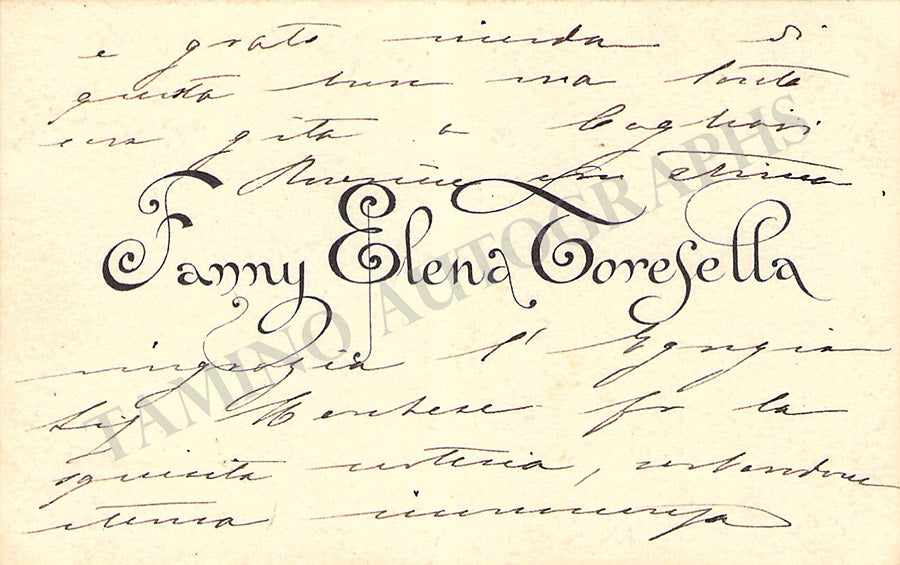 e grato ricordo di
questa
gita a Cagliari
con stima
Fanny Elena Toresella
ringrazia l'Egregia
Sig Marchese per la
squisita cortesia, serbandone
eterna riconoscenza
TAMINO AUTOGRAPHS